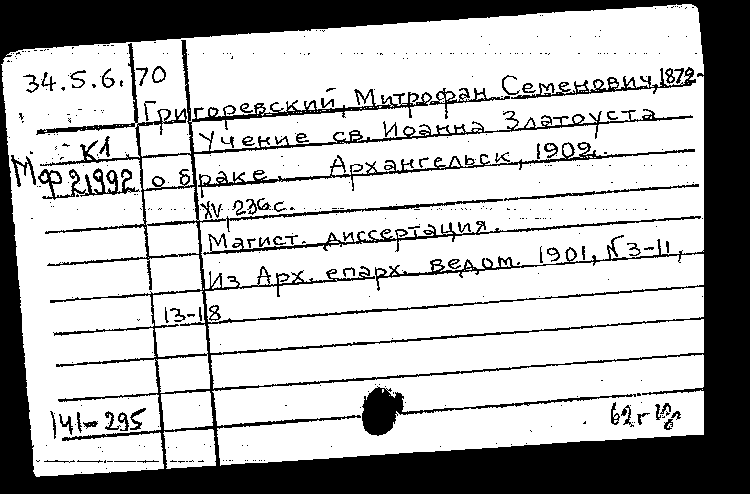 34.5.6.70
Григоревский, Митрофан Семенович, 1872-
К1
Учение св. Иоанна Златоуста
Мф 21992
о браке. Архангельск, 1902.
XV, 236 с.
Магист. диссертация.
Из Арх. епарх. ведом. 1901, №3-11,
13-18.
141-295
62г